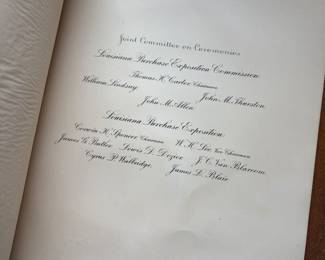 Joint Committee on Ceremonies
Louisiana Purchase Exposition Commission
Thomas H. Carter Chairman
William Lindsay John M. Thurston
John M. Allen
Louisiana Purchase Exposition
Corwin H. Spencer Chairman W. H. Lee Vice Chairman
James G. Butler Lewis D. Dozier J. C. Van Blarcom
Cyrus P. Walbridge James L. Blair